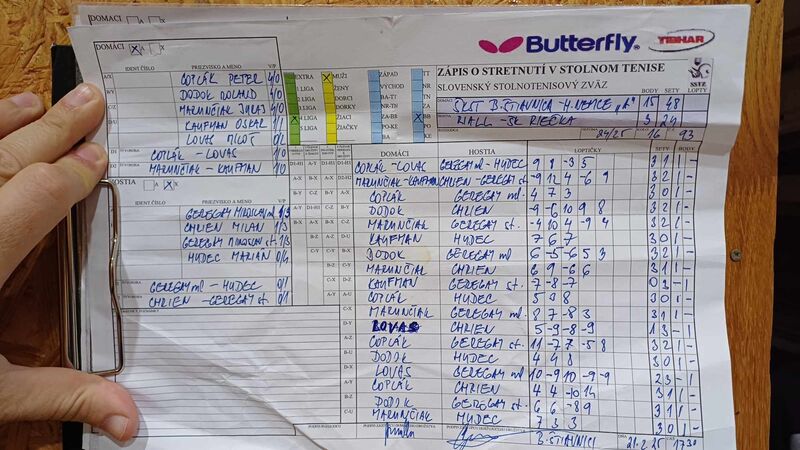 DOMÁCI
DOMÁCI A X
IDENT.ČÍSLO PRIEZVISKO A MENO V/P
COPLÁK PETER 4/0
DODOK ROLAND 4/0
MARUNČIAK JURAJ 4/0
KAUFMAN OSKAR 1/1
LOVAS MILOŠ 0/2
COPLÁK - LOVAS 1/0
MARUNČIAK - KAUFMAN 1/0
HOSTIA A X
IDENT.ČÍSLO PRIEZVISKO A MENO V/P
GEREGAY MIROSLAV ml. 1/3
CHRIEN MILAN 1/3
GEREGAY MIROSLAV st. 1/3
HUDEC MARIAN 0/4
GEREGAY ml - HUDEC 0/1
CHRIEN - GEREGAY st. 0/1
Butterfly TIBHAR
EXTRA MUŽI ZÁPAD TT
1 LIGA ŽENY VÝCHOD NR
DORCI BA-TT
DORKY NR-TN
ŽIACI ZA-BB
LIGA ŽIAČKY PO-KE
ZÁPIS O STRETNUTÍ V STOLNOM TENISE
SLOVENSKÝ STOLNOTENISOVÝ ZVÄZ
SSTZ
BODY SETY LOPTY
DOMÁCI ŠKST B. ŠTIAVNICA - H. NEMCE "A" 15 48
HOSTIA MALL - ŠK RIEČKA 3 24
24/25 16 93
DOMÁCI HOSTIA LOPTIČKY SETY BODY
COPLÁK - LOVAS GEREGAY ml - HUDEC 9 8 -3 5 3 1 1 -
MARUNČIAK - KAUFMAN CHRIEN - GEREGAY st. -9 12 4 -6 9 3 2 1 -
COPLÁK GEREGAY ml. 4 7 3 3 0 1 -
DODOK CHRIEN -9 -6 10 9 8 3 2 1 -
MARUNČIAK GEREGAY st. -4 10 4 -9 4 3 2 1 -
KAUFMAN HUDEC 7 6 7 3 0 1 -
DODOK GEREGAY ml 6 -5 -6 5 3 3 2 1 -
MARUNČIAK CHRIEN 6 9 -6 6 3 1 1 -
KAUFMAN GEREGAY st. -7 -8 -7 0 3 - 1
COPLÁK HUDEC 5 9 8 3 0 1 -
MARUNČIAK GEREGAY ml. 8 7 -8 3 3 1 1 -
LOVAS CHRIEN 5 -9 -8 -9 1 3 - 1
COPLÁK GEREGAY st. 11 -7 7 -5 8 3 2 1 -
DODOK HUDEC 4 4 8 3 0 1 -
LOVAS GEREGAY ml 10 -9 10 -9 -9 2 3 - 1
COPLÁK CHRIEN 4 4 -10 14 3 1 1 -
DODOK GEREGAY st. 6 6 -8 9 3 1 1 -
MARUNČIAK HUDEC 7 3 3 3 0 1 -
B. ŠTIAVNICI 21.2.25 17:30